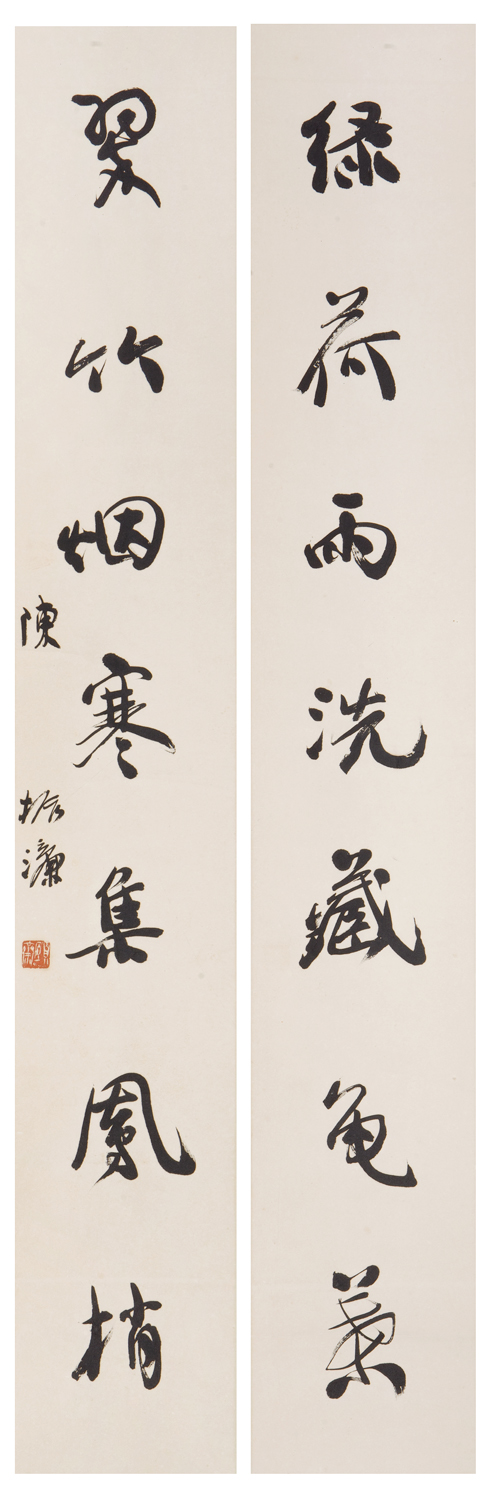 绿荷雨洗藏龟葉
翠竹烟寒集鳳梢
陳振濂